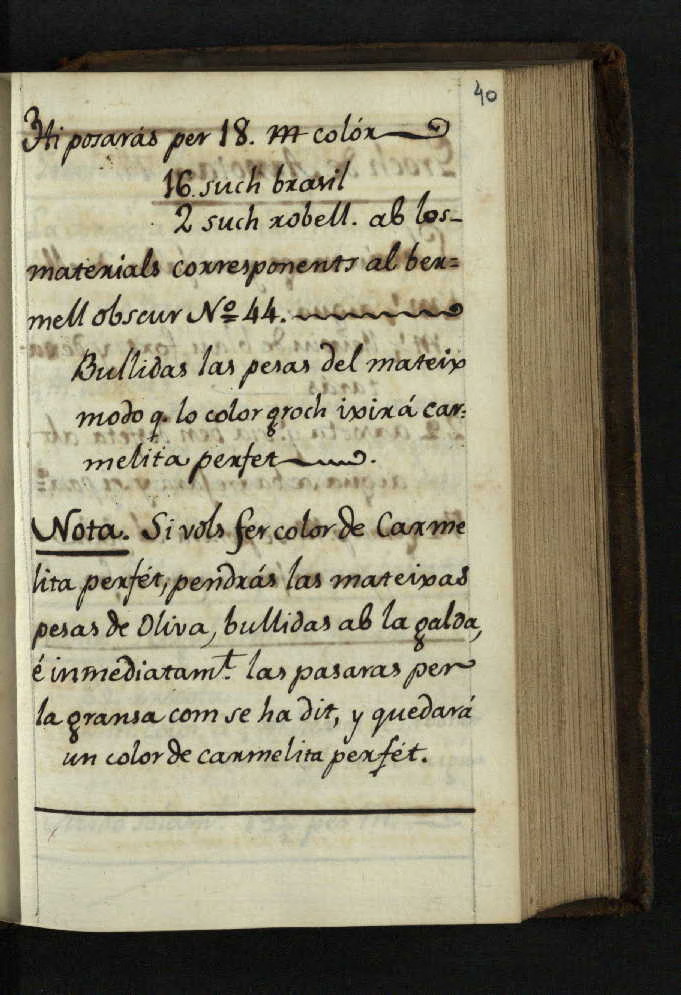 40
Hi posarás per 18. m colór
16. such brasil
2 such robell. ab los-
materials corresponents al ber=
mell obscur Nº 44.
Bullidas las pesas del mateix
modo q. lo color groch ixirá car=
melita perfet.
Nota. Si vols fer color de Carme
lita perfét, pendrás las mateixas
pesas de Oliva, bullidas ab la galda,
é inmediatamt. las pasaras per
la gransa com se ha dit, y quedará
un color de carmelita perfét.